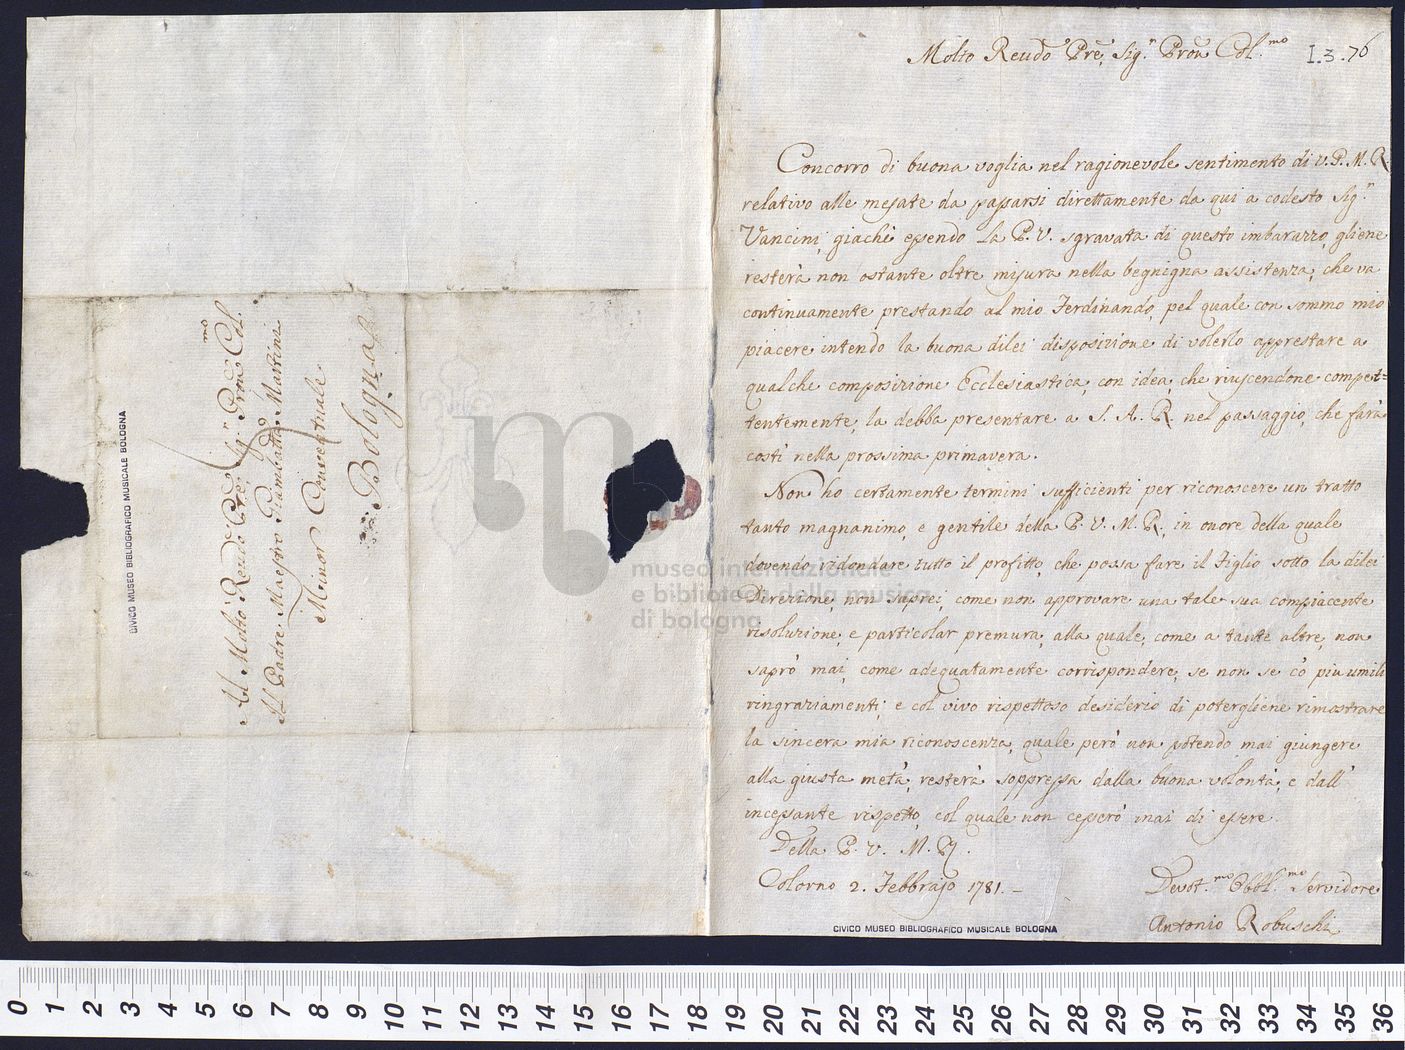 Al Molto Reudo Pre Sig.r Pron Col.mo
Il Padre Maestro Giambatta Martini
Minor Conventuale
Bologna
CIVICO MUSEO BIBLIOGRAFICO MUSICALE BOLOGNA
Molto Reudo Pre, Sig.r Pron Col.mo
I.3.76
Concorro di buona voglia nel ragionevole sentimento di V.P.M.R.
relativo alle mesate da passarsi direttamente da qui a codesto Sig.r
Vancini, giachè essendo La P.V. sgravata di questo imbarazzo, gliene
resterà non ostante oltre misura nella begnigna assistenza, che va
continuamente prestando al mio Ferdinando, pel quale con sommo mio
piacere intendo la buona dilei disposizione di volerlo apprestare a
qualche composizione Ecclesiastica, con idea, che riuscendone compet=
tentemente, la debba presentare a S. A. R. nel passaggio, che farà
costì nella prossima primavera.
Non ho certamente termini sufficienti per riconoscere un tratto
tanto magnanimo, e gentile della P. V. M. R., in onore della quale
dovendo ridondare tutto il profitto, che possa fare il Figlio sotto la dilei
Direzione, non saprei, come non approvare una tale sua compiacente
risoluzione, e particolar premura, alla quale, come a tante altre, non
saprò mai, come adequatamente corrispondere, se non se cò più umili
ringraziamenti, e col vivo rispettoso desiderio di potergliene rimostrare
la sincera mia riconoscenza, quale però non potendo mai giungere
alla giusta metà, resterà soppressa dalla buona volontà, e dall'
incessante rispetto, col quale non cesserò mai di essere
Della P. V. M. R.
Colorno 2. Febbrajo 1781. –
Devot.mo Obbl.mo Servidore
Antonio Robuschi
CIVICO MUSEO BIBLIOGRAFICO MUSICALE BOLOGNA
museo internazionale
e biblioteca della musica
di bologna
0 1 2 3 4 5 6 7 8 9 10 11 12 13 14 15 16 17 18 19 20 21 22 23 24 25 26 27 28 29 30 31 32 33 34 35 36